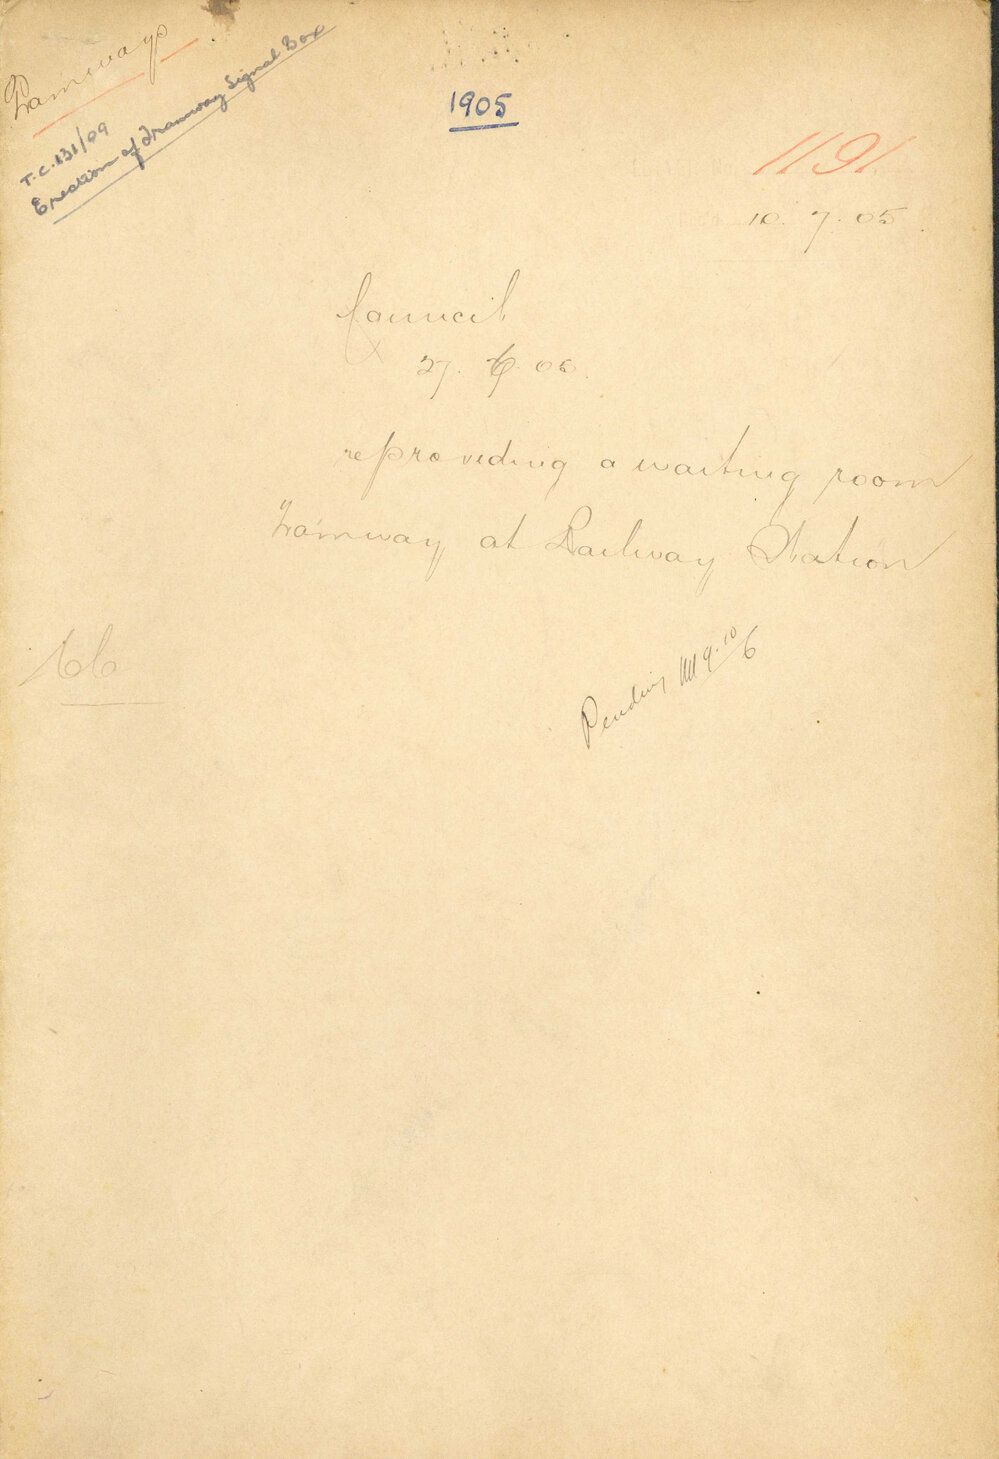 Tramways
T.C. 131/09
Erection of Tramway Signal Box
1905
1191
10. 7. 05
Council
27. 6. 05
re providing a waiting room
Tramway at Railway Station
Pending 9.10/6